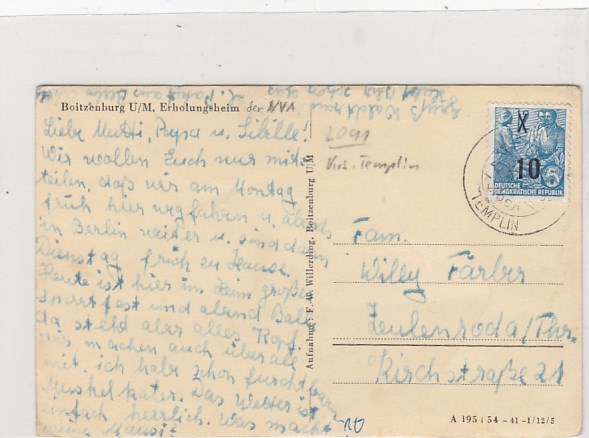 Boitzenburg U/M. Erholungsheim der NVA
Liebe Mutti, Papa u. Sibille!
Wir wollen Euch nur mit-
teilen, daß wir am Montag
früh hier wegfahren u. abends
in Berlin weiter u. sind dann
Dienstag früh zu Hause.
Heute ist hier im Heim großes
Sportfest und abend Ball
da steht aber alles Kopf.
wir machen auch überall
mit. ich habe schon furchtbaren
Muskelkater. Das Wetter ist
einfach herrlich. Was macht
meine Mausi?
Aufnahme: F.-W. Willerding, Boitzenburg U/M
2091
Krs. Templin
X
10
5
DEUTSCHE
DEMOKRATISCHE REPUBLIK
TEMPLIN
Fam.
Willy Färber
Zeulenroda/Thür.
Kirchstraße 21
A 195 i 54 - 41 - 1/12/5